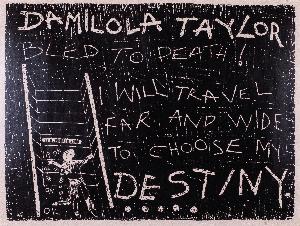 DAMILOLA TAYLOR
BLED TO DEATH!
I WILL TRAVEL
FAR AND WIDE
TO CHOOSE MY
DESTINY